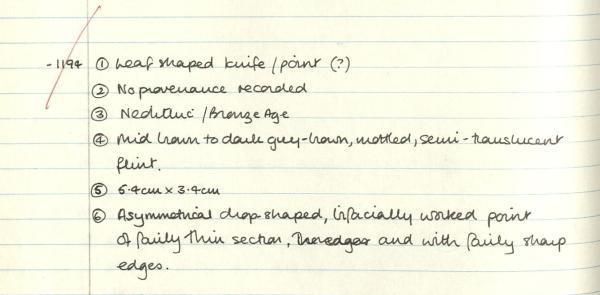 -1194 ① Leaf shaped knife / point (?)
② No provenance recorded
③ Neolithic / Bronze Age
④ Mid brown to dark grey-brown, mottled, semi-translucent
flint.
⑤ 5.4cm x 3.4cm
⑥ Asymmetrical drop shaped, bifacially worked point
of fairly thin section, and with fairly sharp
edges.